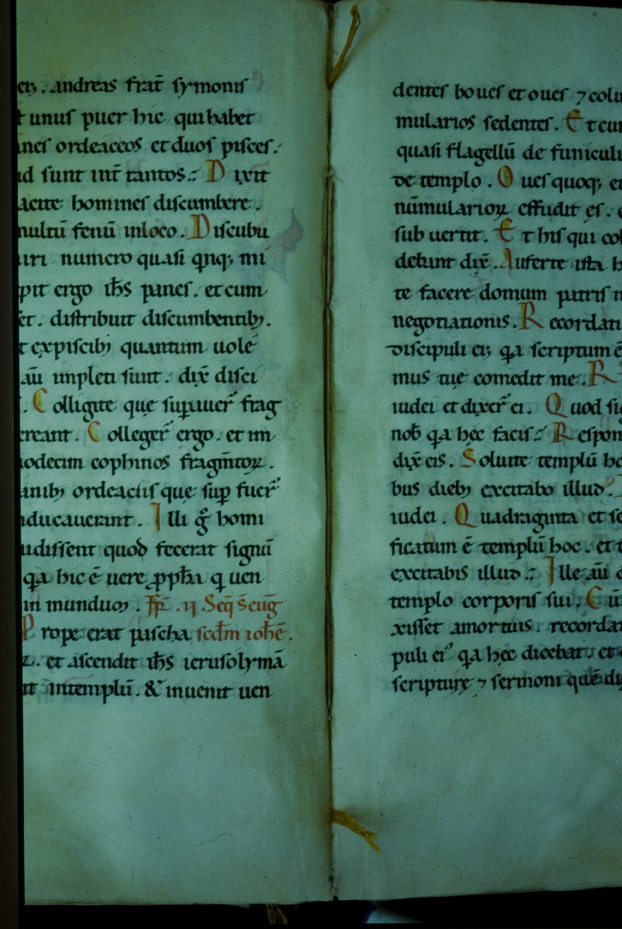 eiꝰ. andreas frat̄ symonis
unus puer hic qui habet
panes ordeaceos et duos pisces.
sunt int̄ tantos. Dixit
facite homines discumbere.
multū fenū in loco. Discubu
uiri numero quasi qnqꝫ mi
ergo ih̄s panes. et cum
distribuit discumbentibꝫ.
et ex piscibꝫ quantum uolē
aū impleti sunt. dix̄ disci
Colligite que supauer̄ frag
Colleger̄ ergo. et im
duodecim cophinos fragm̄toꝝ.
panibꝫ ordeaciis que suꝑ fuer̄
manducauerant. Illi ḡ homi
uidissent quod fecerat signū
qa hic ē uere ꝓph̄a q uen
in mundum. F̄r. ij Seq̄ s̄ euḡ
Prope erat pascha scd̄m ioh̄e.
et ascendit ih̄s ierusolymā
in templū. & inuenit uen
dentes boues et oues ⁊ colu
mularios sedentes. Et cu
quasi flagellū de funiculi
de templo. Oues quoqꝫ e
nūmularioꝝ effudit es.
sub uertit. Et his qui co
debant dix̄. Auferte ista
te facere domum patris
negotiationis. Recordati
discipuli eiꝰ qa scriptum ē
mus tue comedit me. R
iudei et dixer̄ ei. Quod si
nob̄ qa hec facis. Respon
dix̄ eis. Soluite templū ho
bus diebꝫ excitabo illud.
iudei. Quadraginta et se
ficatum ē templū hoc. et
excitabis illud. Ille aū
templo corporis sui. Cū
xisset a mortuis. recorda
puli eiꝰ qa hec dicebat. et
scripture ⁊ sermoni quē di